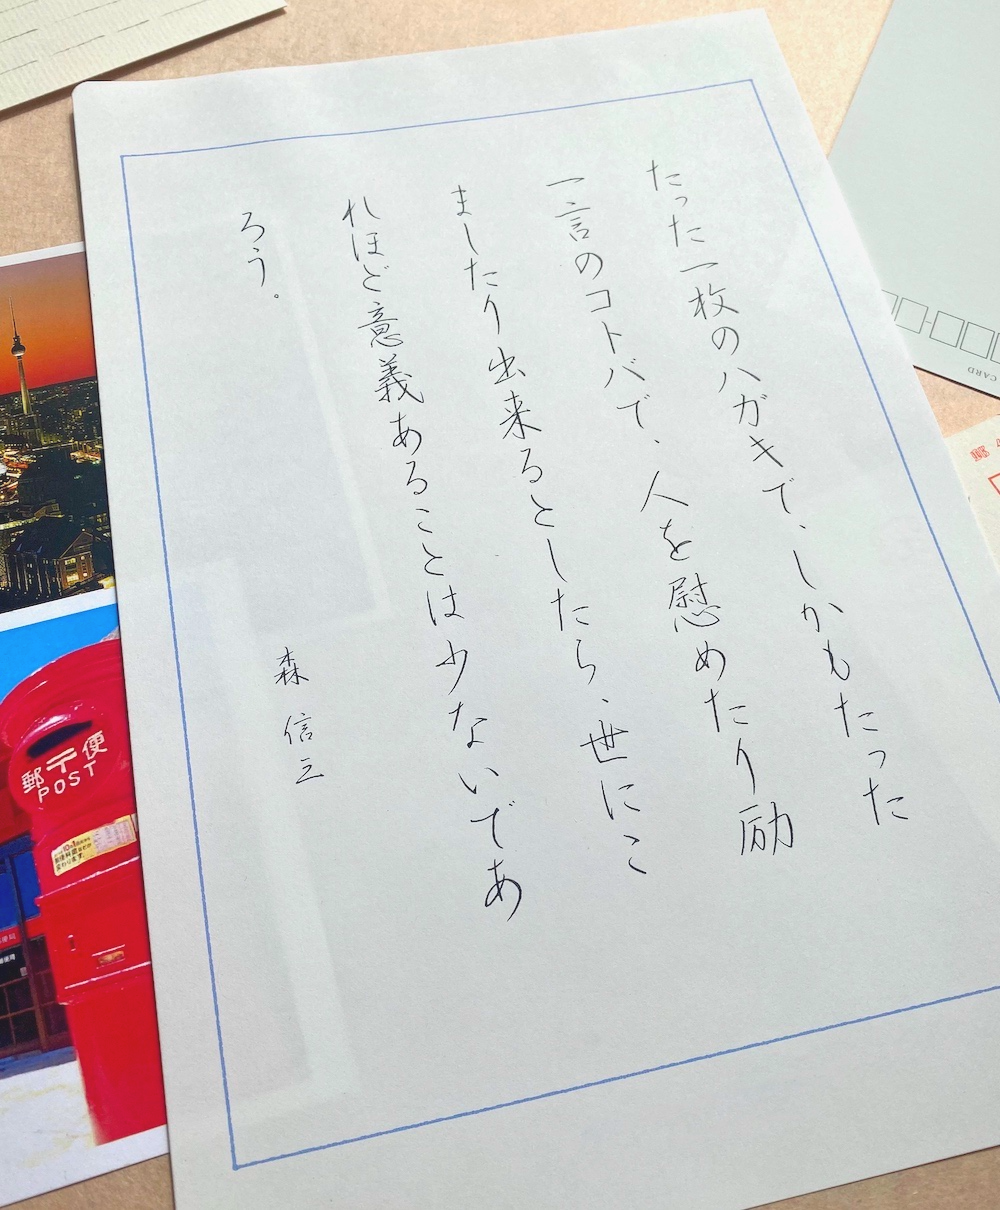 たった一枚のハガキで、しかもたった
一言のコトバで、人を慰めたり励
ましたり出来るとしたら、世にこ
れほど意義あることは少ないであ
ろう。
森信三
郵〒便
POST
CARD